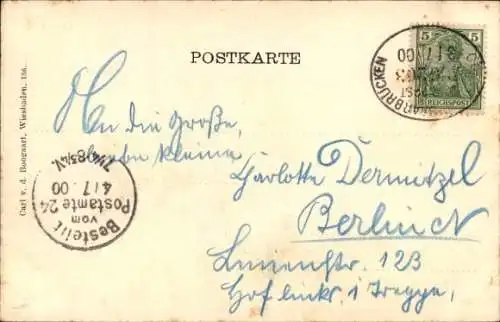 POSTKARTE
5 5
3 1 7 00
REICHSPOST
Carl v. d. Boogaart, Wiesbaden. 156.
An die Große,
kleine
Charlotte Dermitzel
Berlin
123
Hof links 1 Treppe,
Bestellt
vom
Postamte 24
4 1 7 00